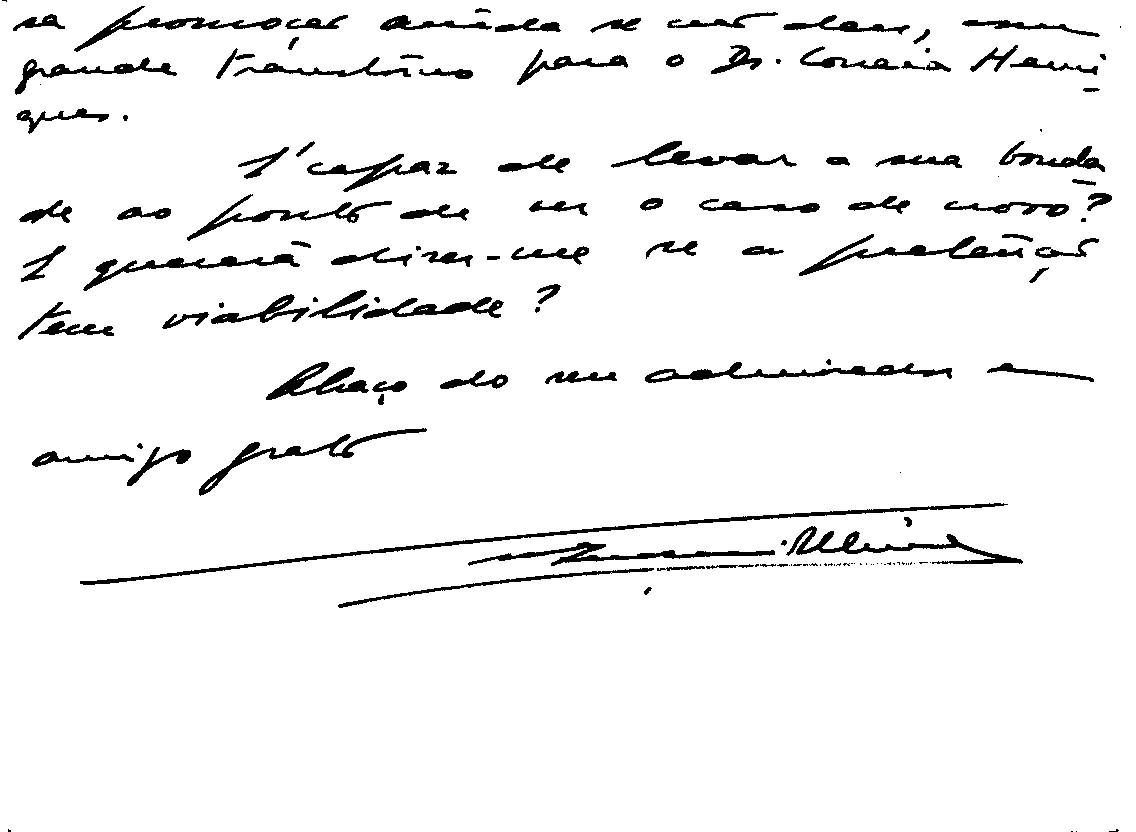 sa promoção ainda se não deu, com
grande transtorno para o Dr. Correia Henri
ques.
É capaz de levar a sua bonda
de ao ponto de ver o caso de novo?
E quererá dizer-me se a pretenção
tem viabilidade?
Abraço do seu admirador e
amigo grato